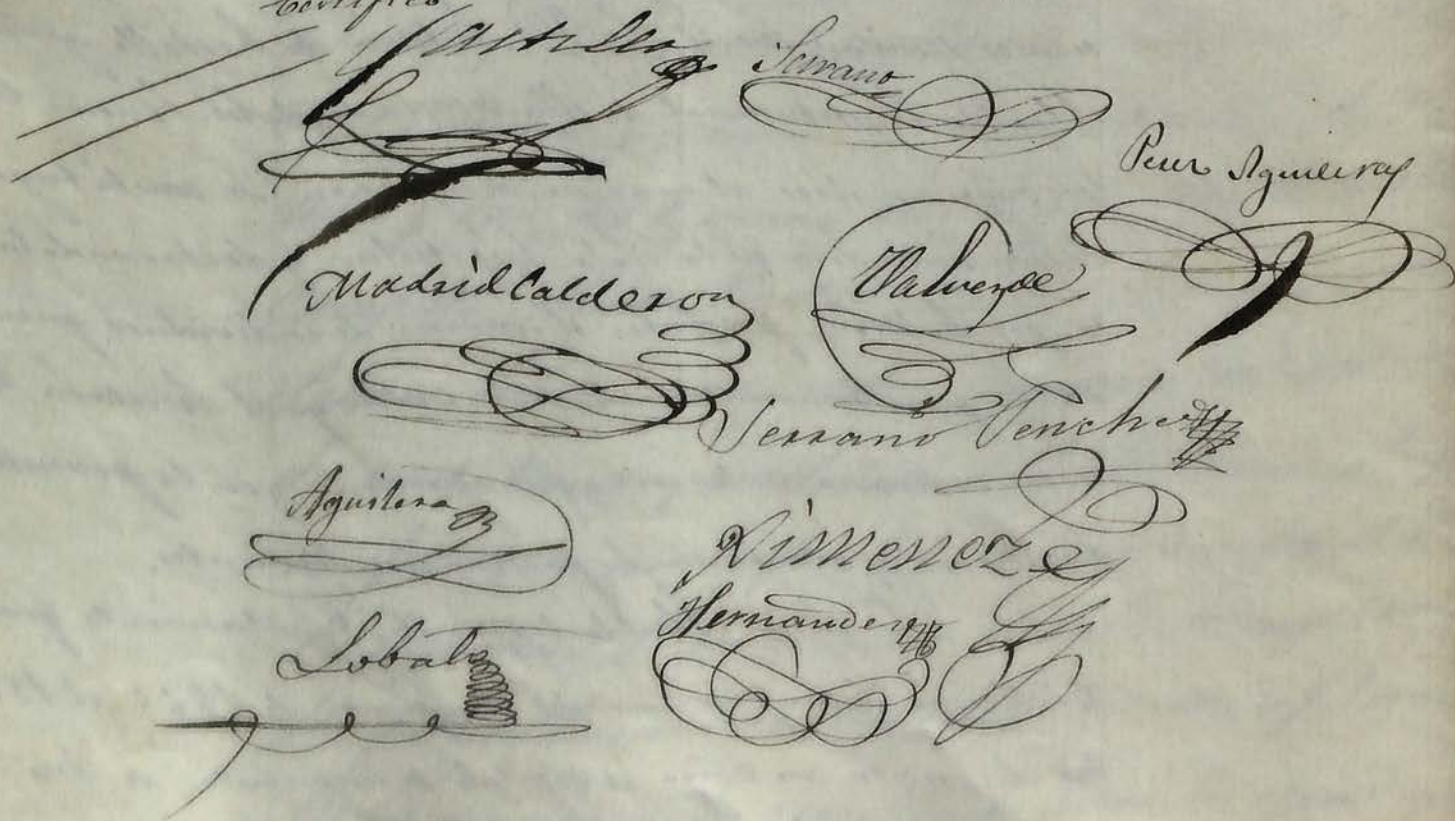 Certifico
Castillo
Serrano
Perez Aguilera
Madrid Calderon
Valverde
Serrano Sanchez
Aguilera
Ximenez
Hernandez
Lobato